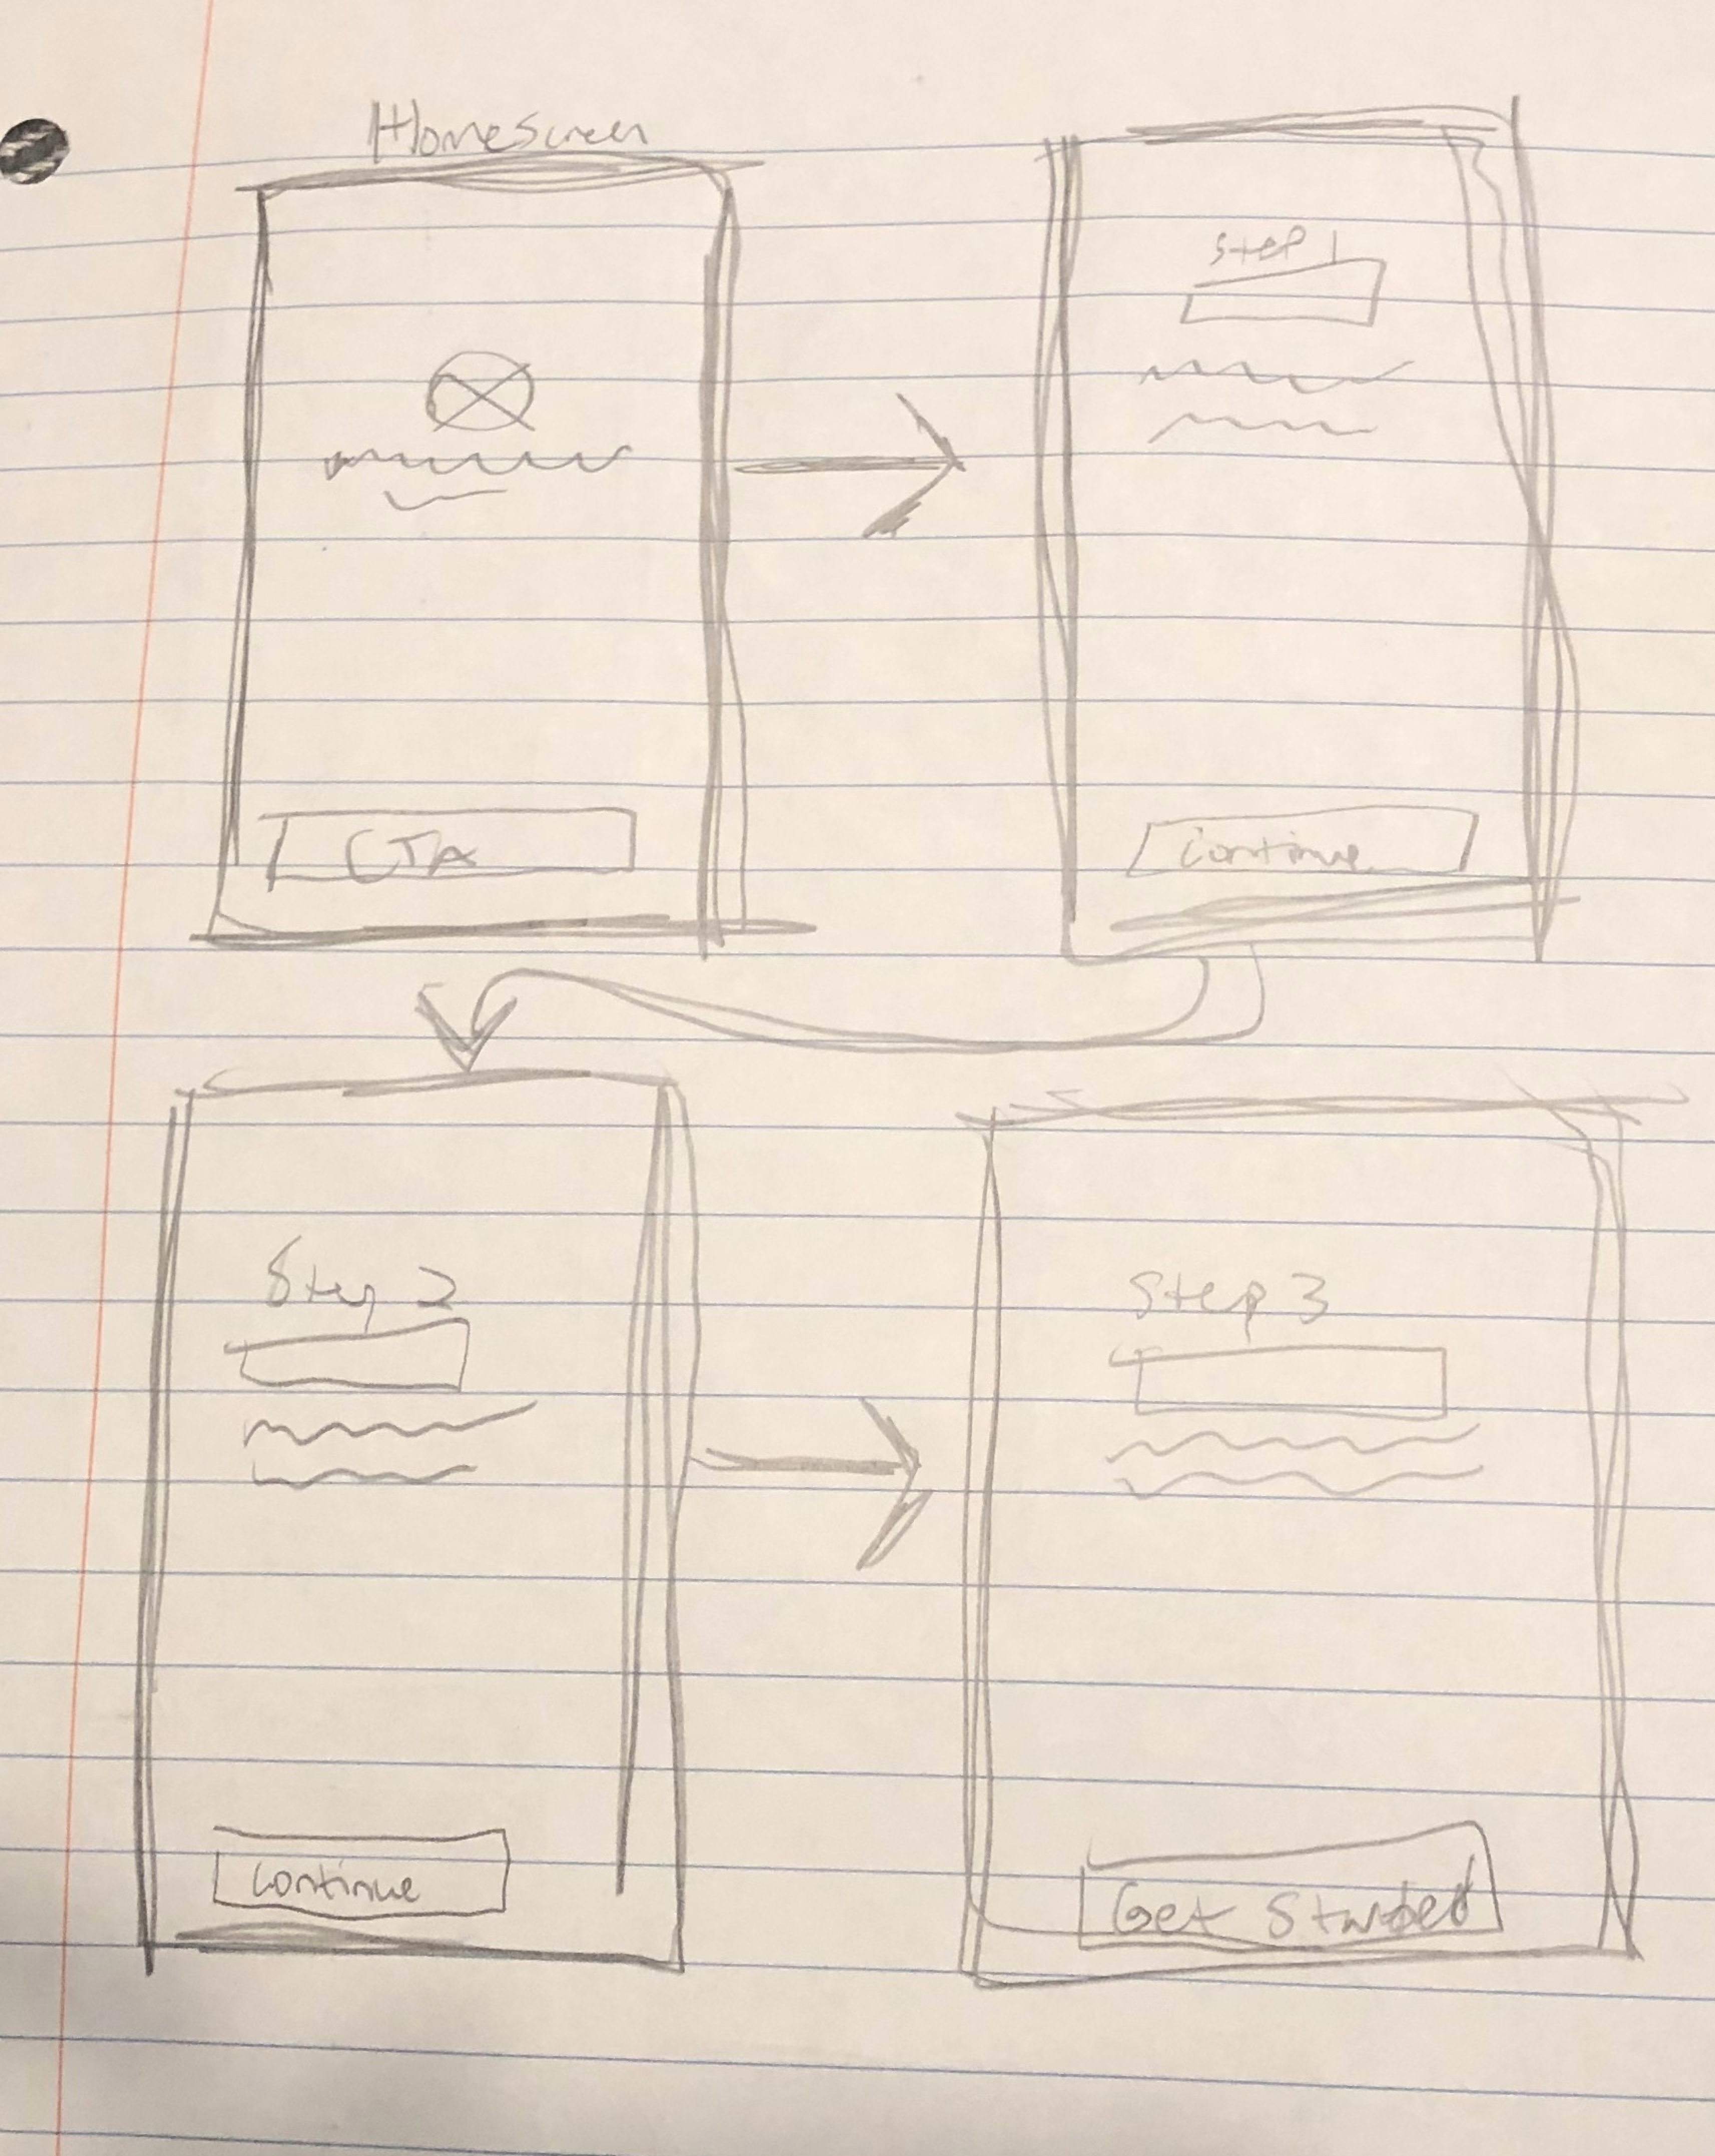 HomeScreen
CTA
Step 1
Continue
Step 2
Continue
Step 3
Get Started